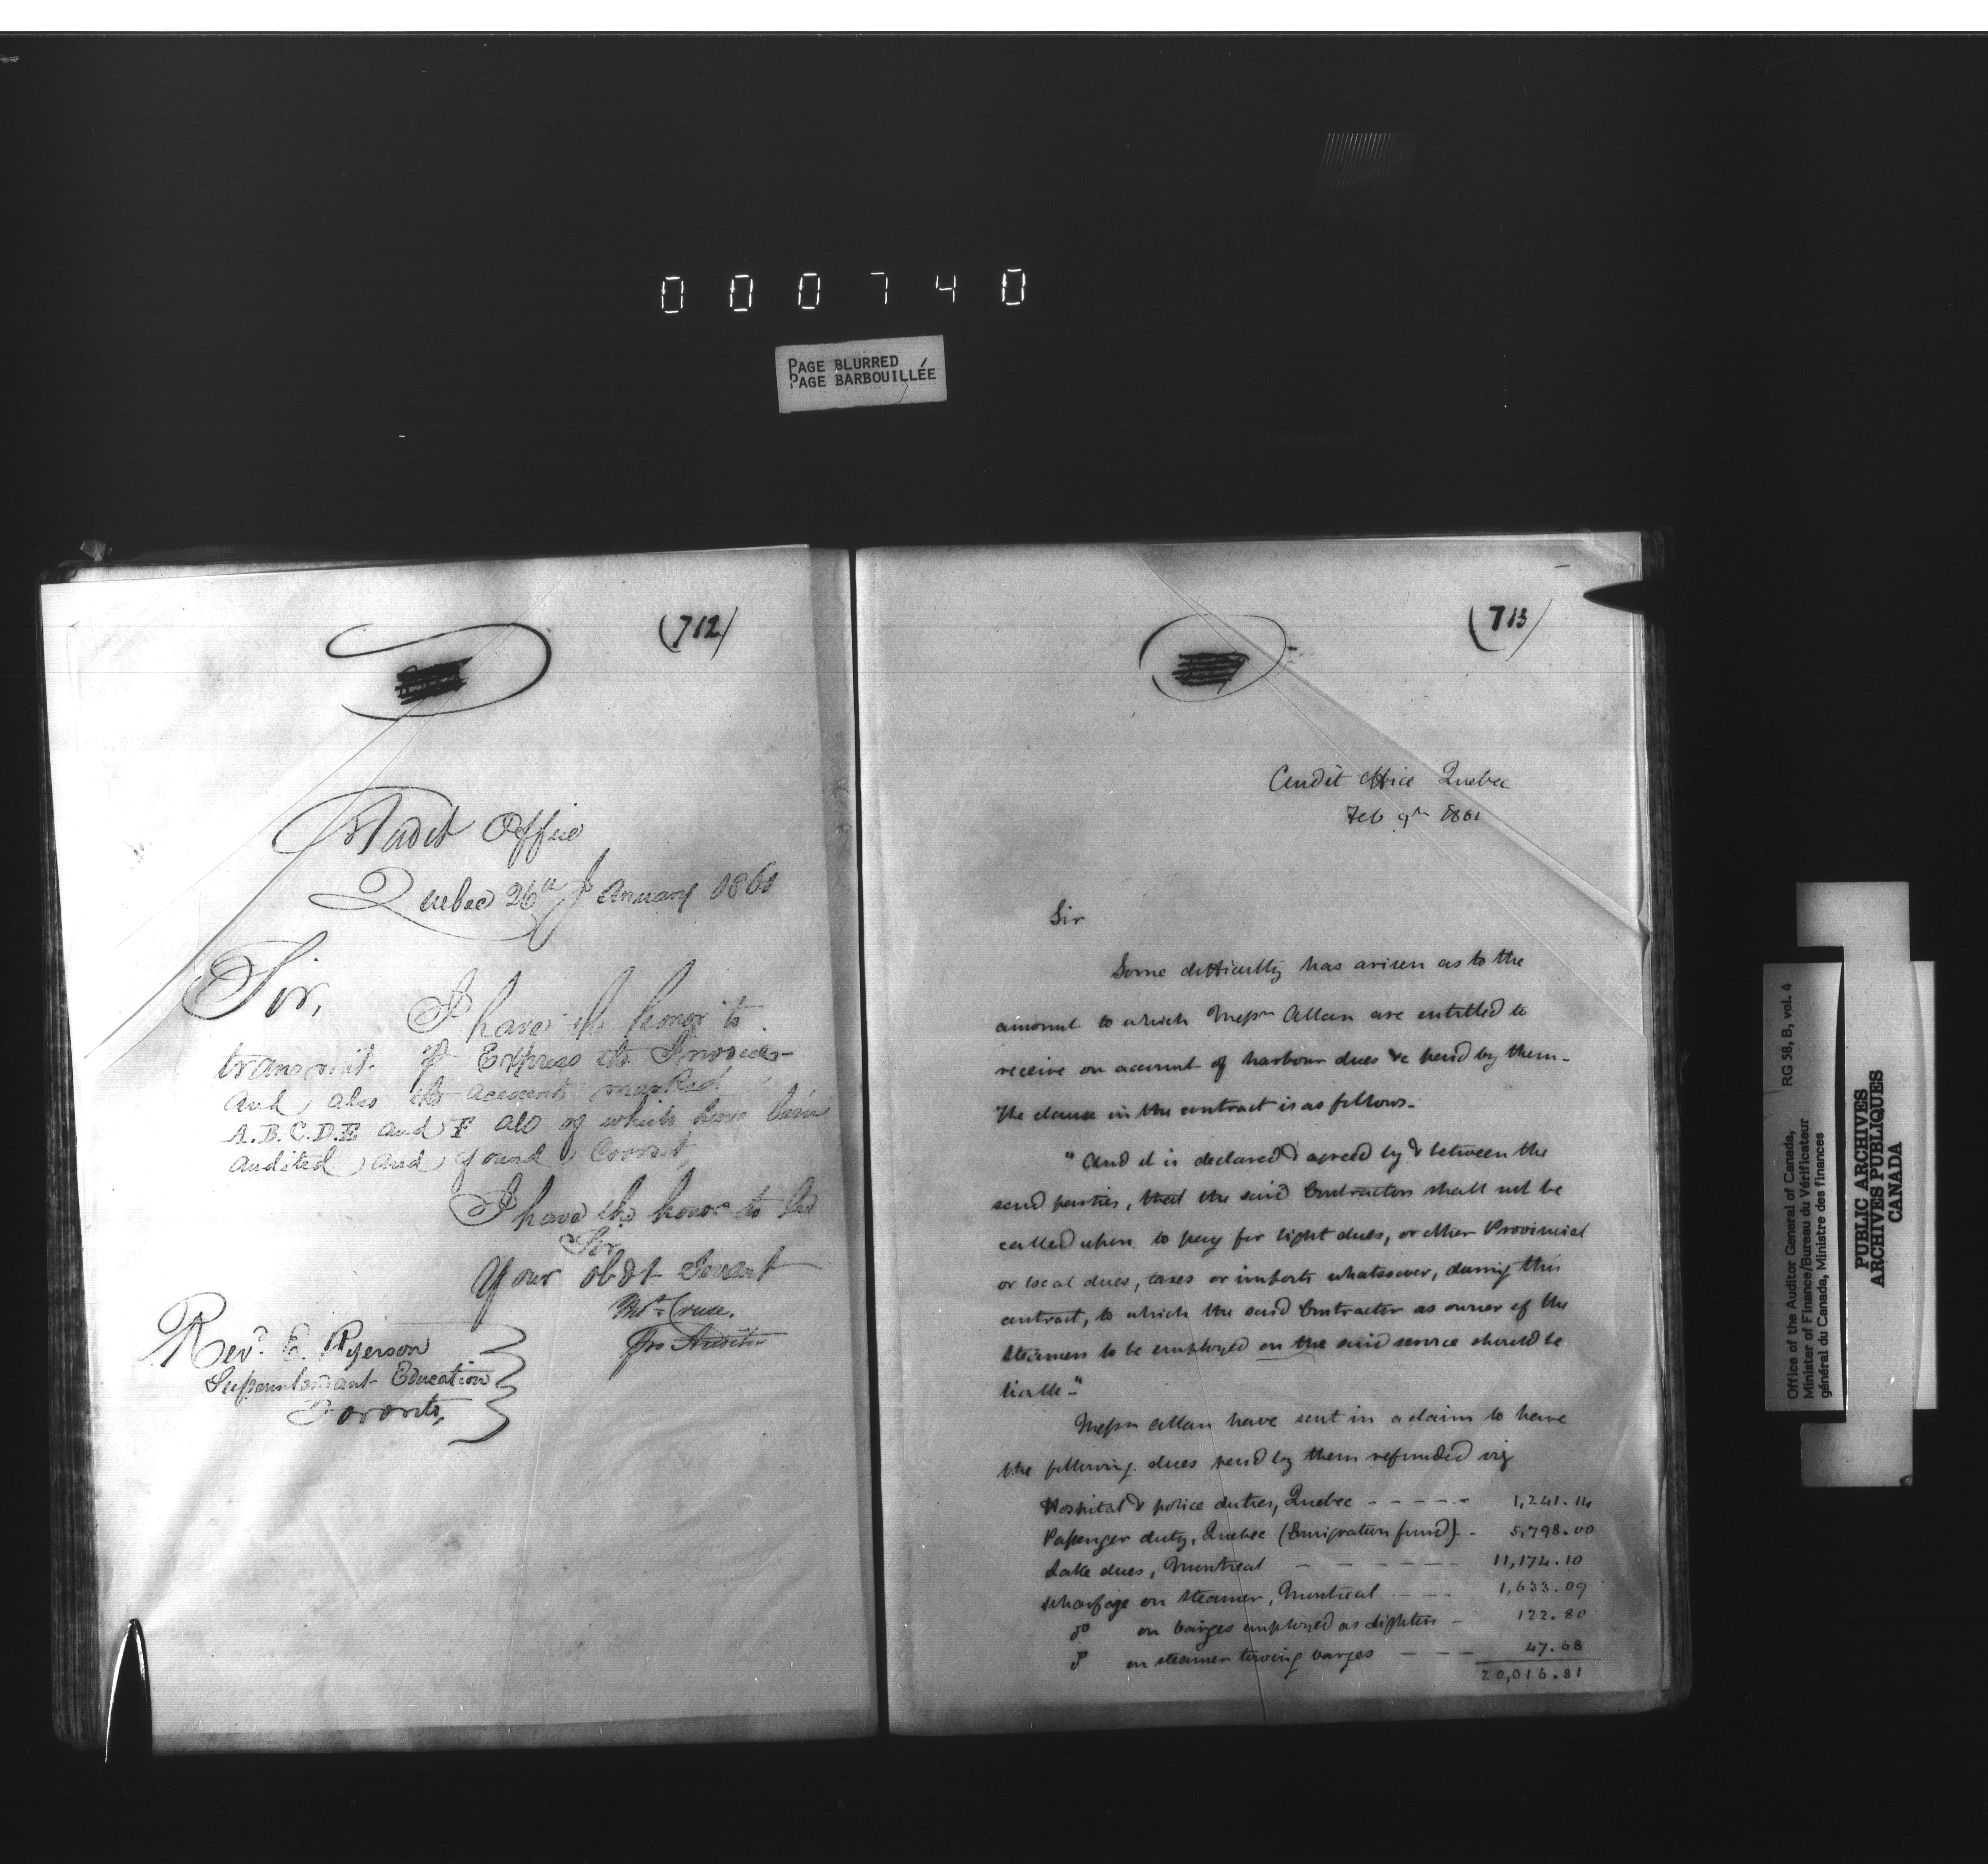 000740
PAGE BLURRED
PAGE BARBOUILLÉE
(712)
Audit Office
Quebec 26th January 1861
Sir,
I have the honor to
transmit. pr Express the Invoices
and also the accounts marked
A.B.C.D.E and F all of which have been
audited and found Correct,
I have the honor to be
Sir
Your obdt Servant
Thos Cruse.
Pro Auditor
Revd. E. Ryerson
Superintendant Education
Toronto,
(713)
Audit Office Quebec
Feb 9th 1861
Sir
Some difficulty has arisen as to the
amount to which Messrs Allan are entitled to
receive on account of harbour dues &c paid by them-
The clause in the contract is as follows-
"And it is declared & agreed by & between the
said parties, that the said Contractors shall not be
called upon to pay for light dues, or other Provincial
or local dues, taxes or imposts whatsoever, during this
contract, to which the said Contractor as owner of the
Steamers to be employed on the said service should be
liable-"
Messrs Allan have sent in a claim to have
the following dues paid by them refunded viz
Hospital & police duties, Quebec - - - - - 1,241.14
Passenger duty, Quebec (Emigration fund) - 5,798.00
Lake dues, Montreal - - - - - - 11,174.10
Wharfage on steamer, Montreal - - - 1,633.09
do on barges employed as lighters - 122.80
do on steamer towing barges - - - 47.68
20,016.81
Office of the Auditor General of Canada, RG 58, B, vol. 4
Minister of Finance/Bureau du Vérificateur
général du Canada, Ministre des finances
PUBLIC ARCHIVES
ARCHIVES PUBLIQUES
CANADA